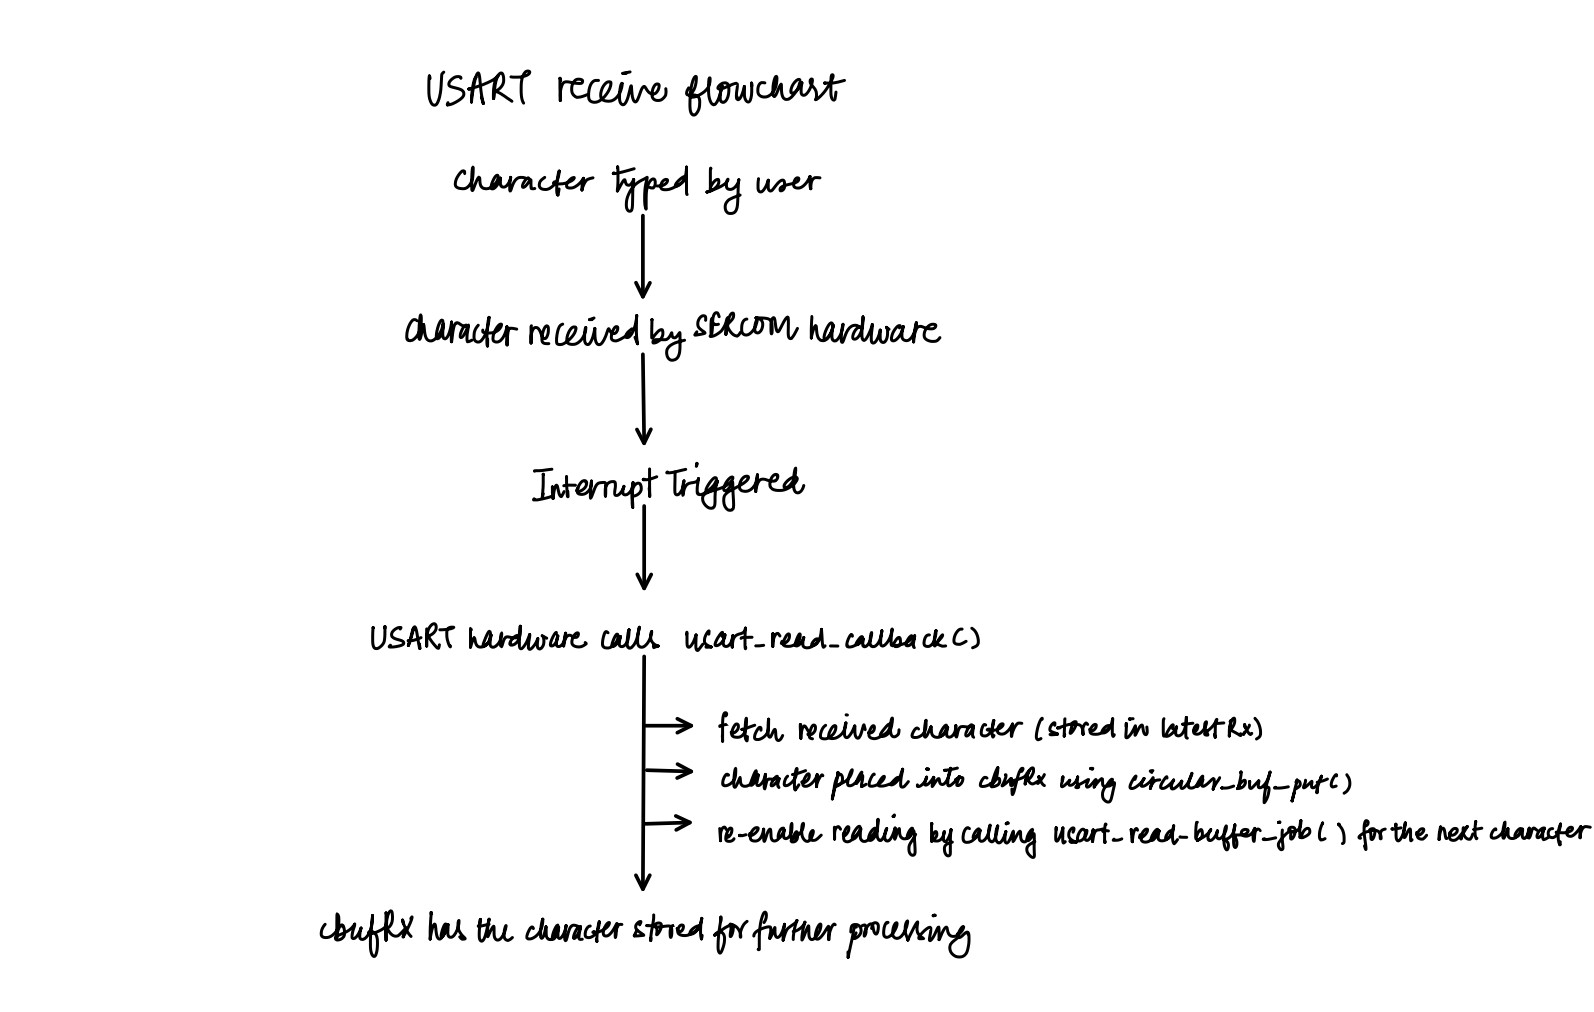 USART receive flowchart
character typed by user
character received by SERCOM hardware
Interrupt Triggered
USART hardware calls usart_read_callback()
fetch received character (stored in latestRx)
character placed into cbufRx using circular_buf_put()
re-enable reading by calling usart_read_buffer_job() for the next character
cbufRx has the character stored for further processing